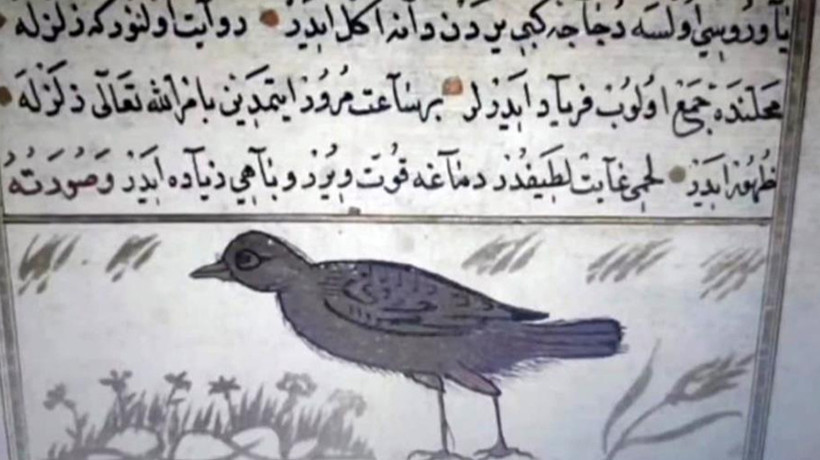 ياوروسي اولسه دجاجه كبي يردن دانه اكل ايدر روايت اولنور كه زلزله
محلنده جمع اولوب فرياد ايدرلر برساعت مرور ايتمدين بامرالله تعالى زلزله
ظهور ايدر لحمي غايت لطيفدر دماغه قوت ويرر و باهي زياده ايدر وصورته